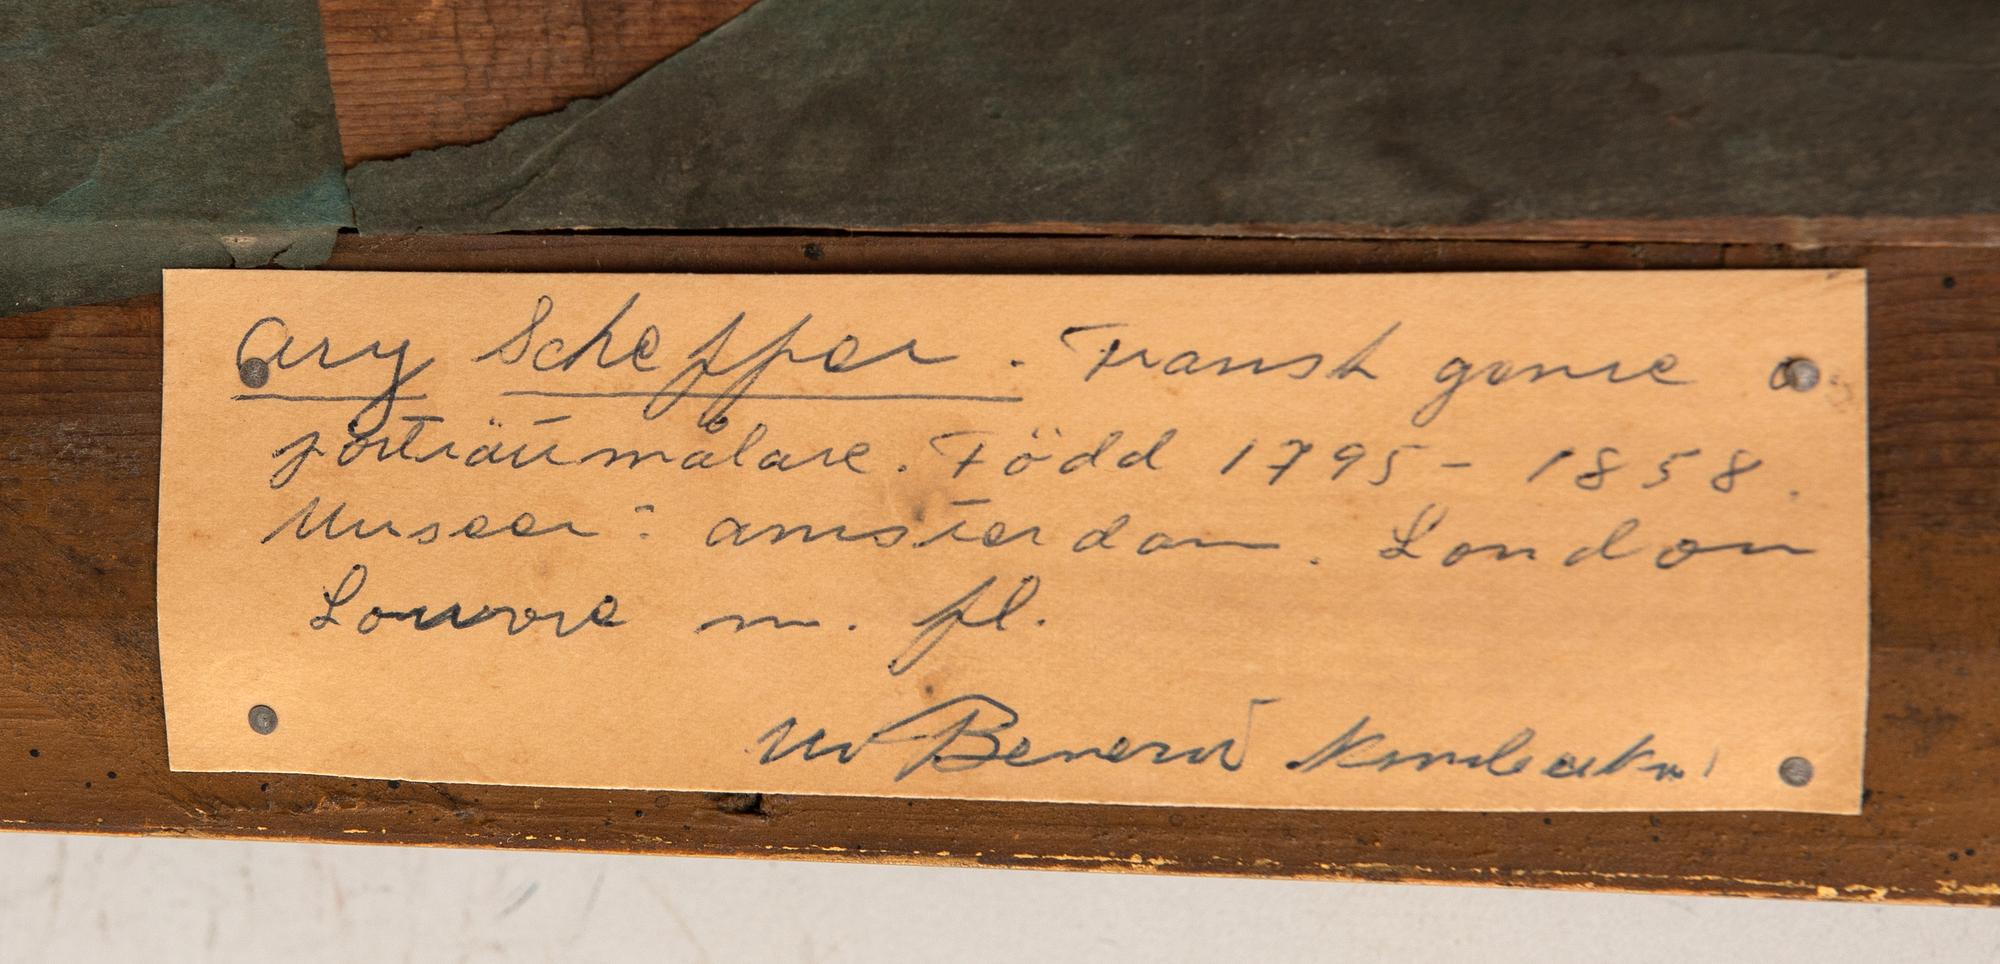 Ary Scheffer. Fransk genre o
porträttmålare. Född 1795 - 1858.
Museer: Amsterdam. London
Louvre m. fl.